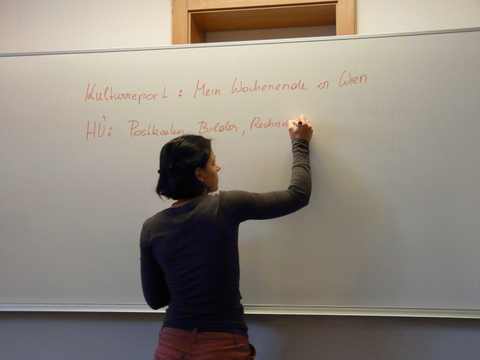 Kulturreport: Mein Wochenende in Wien
HÜ: Postkarten, Bilder,